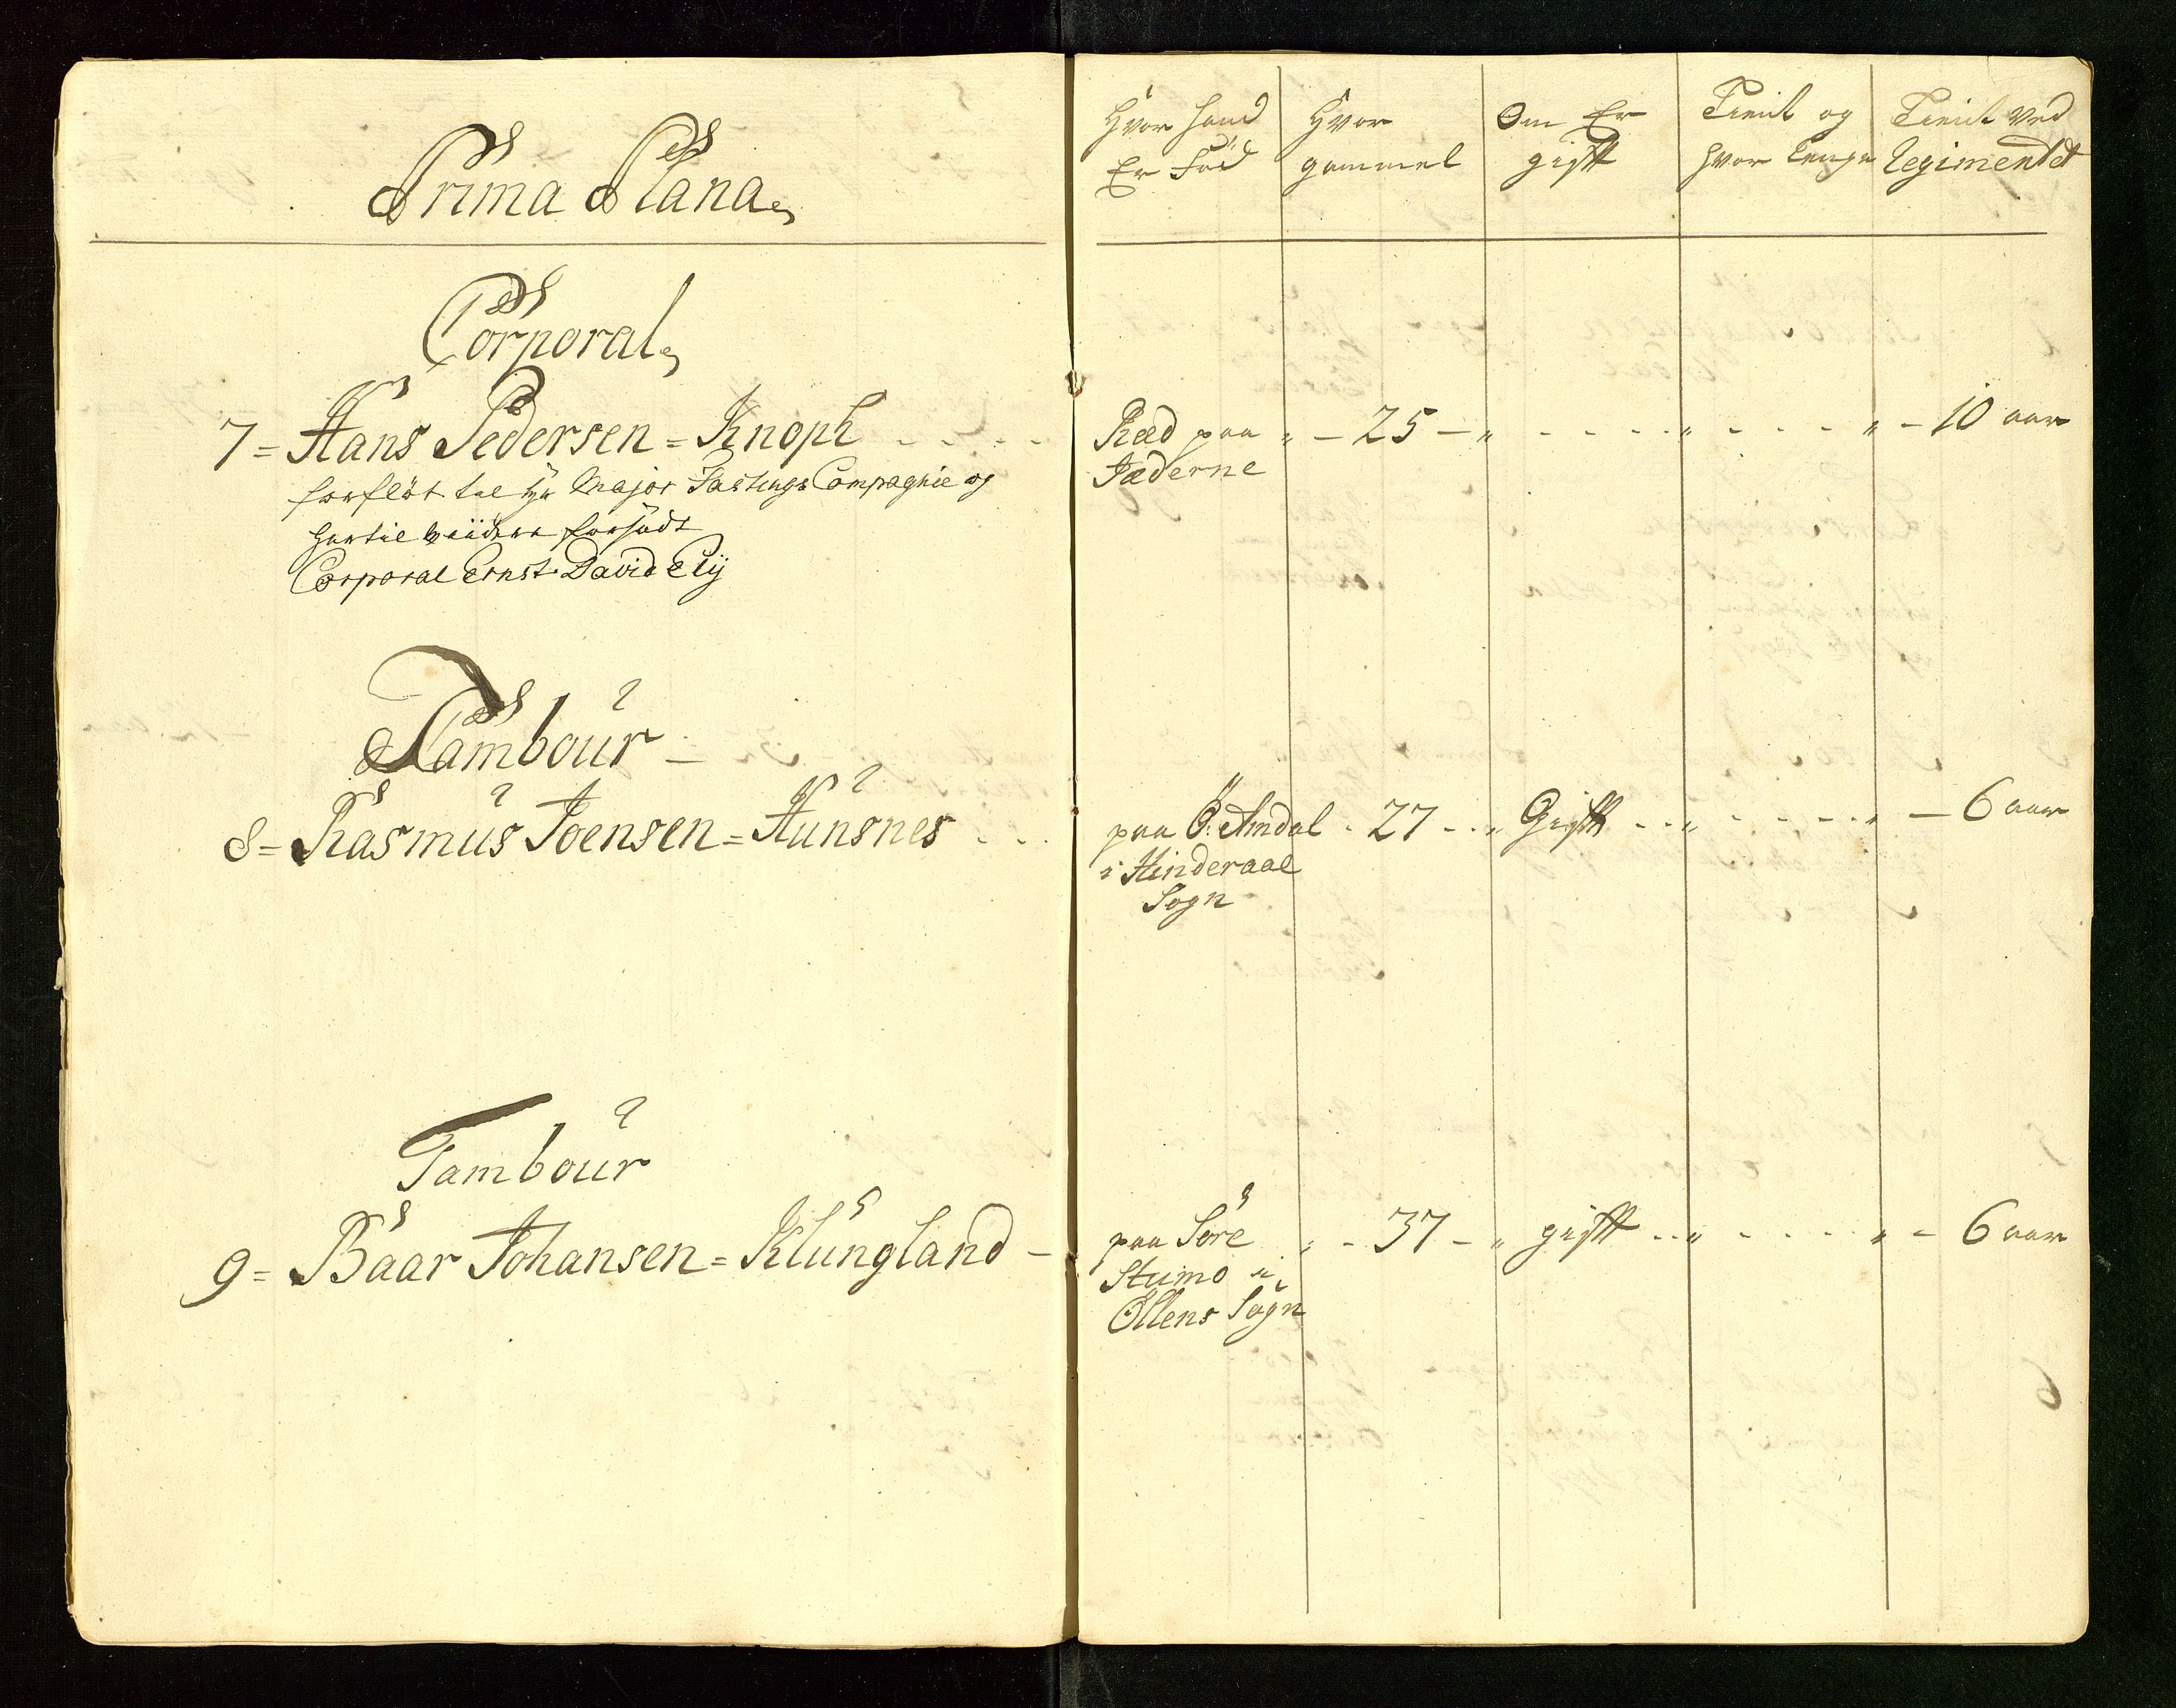 Prima Plana
Corporal
7 = Hans Pedersen = Knoph
forfløt til Hr Major Fastings Compagnie og
hertil forsadt
Corporal Ernst David Elÿ
Tambour
8 = Rasmus Joensen = Hunsnes
Tambour
9 = Baar Johansen = Klungland
Hvor hand Er Föd
Hvor gammel
Om Er gifft
Tient og hvor lenge
Tient ved Regimentet
Ræd paa Jæderne - 25 - 10 aar
paa Ö: Amdal i Hinderaae Sogn - 27 - Gifft - 6 aar
paa Söre Stumo i Öllens Sogn - 37 - gifft - 6 aar